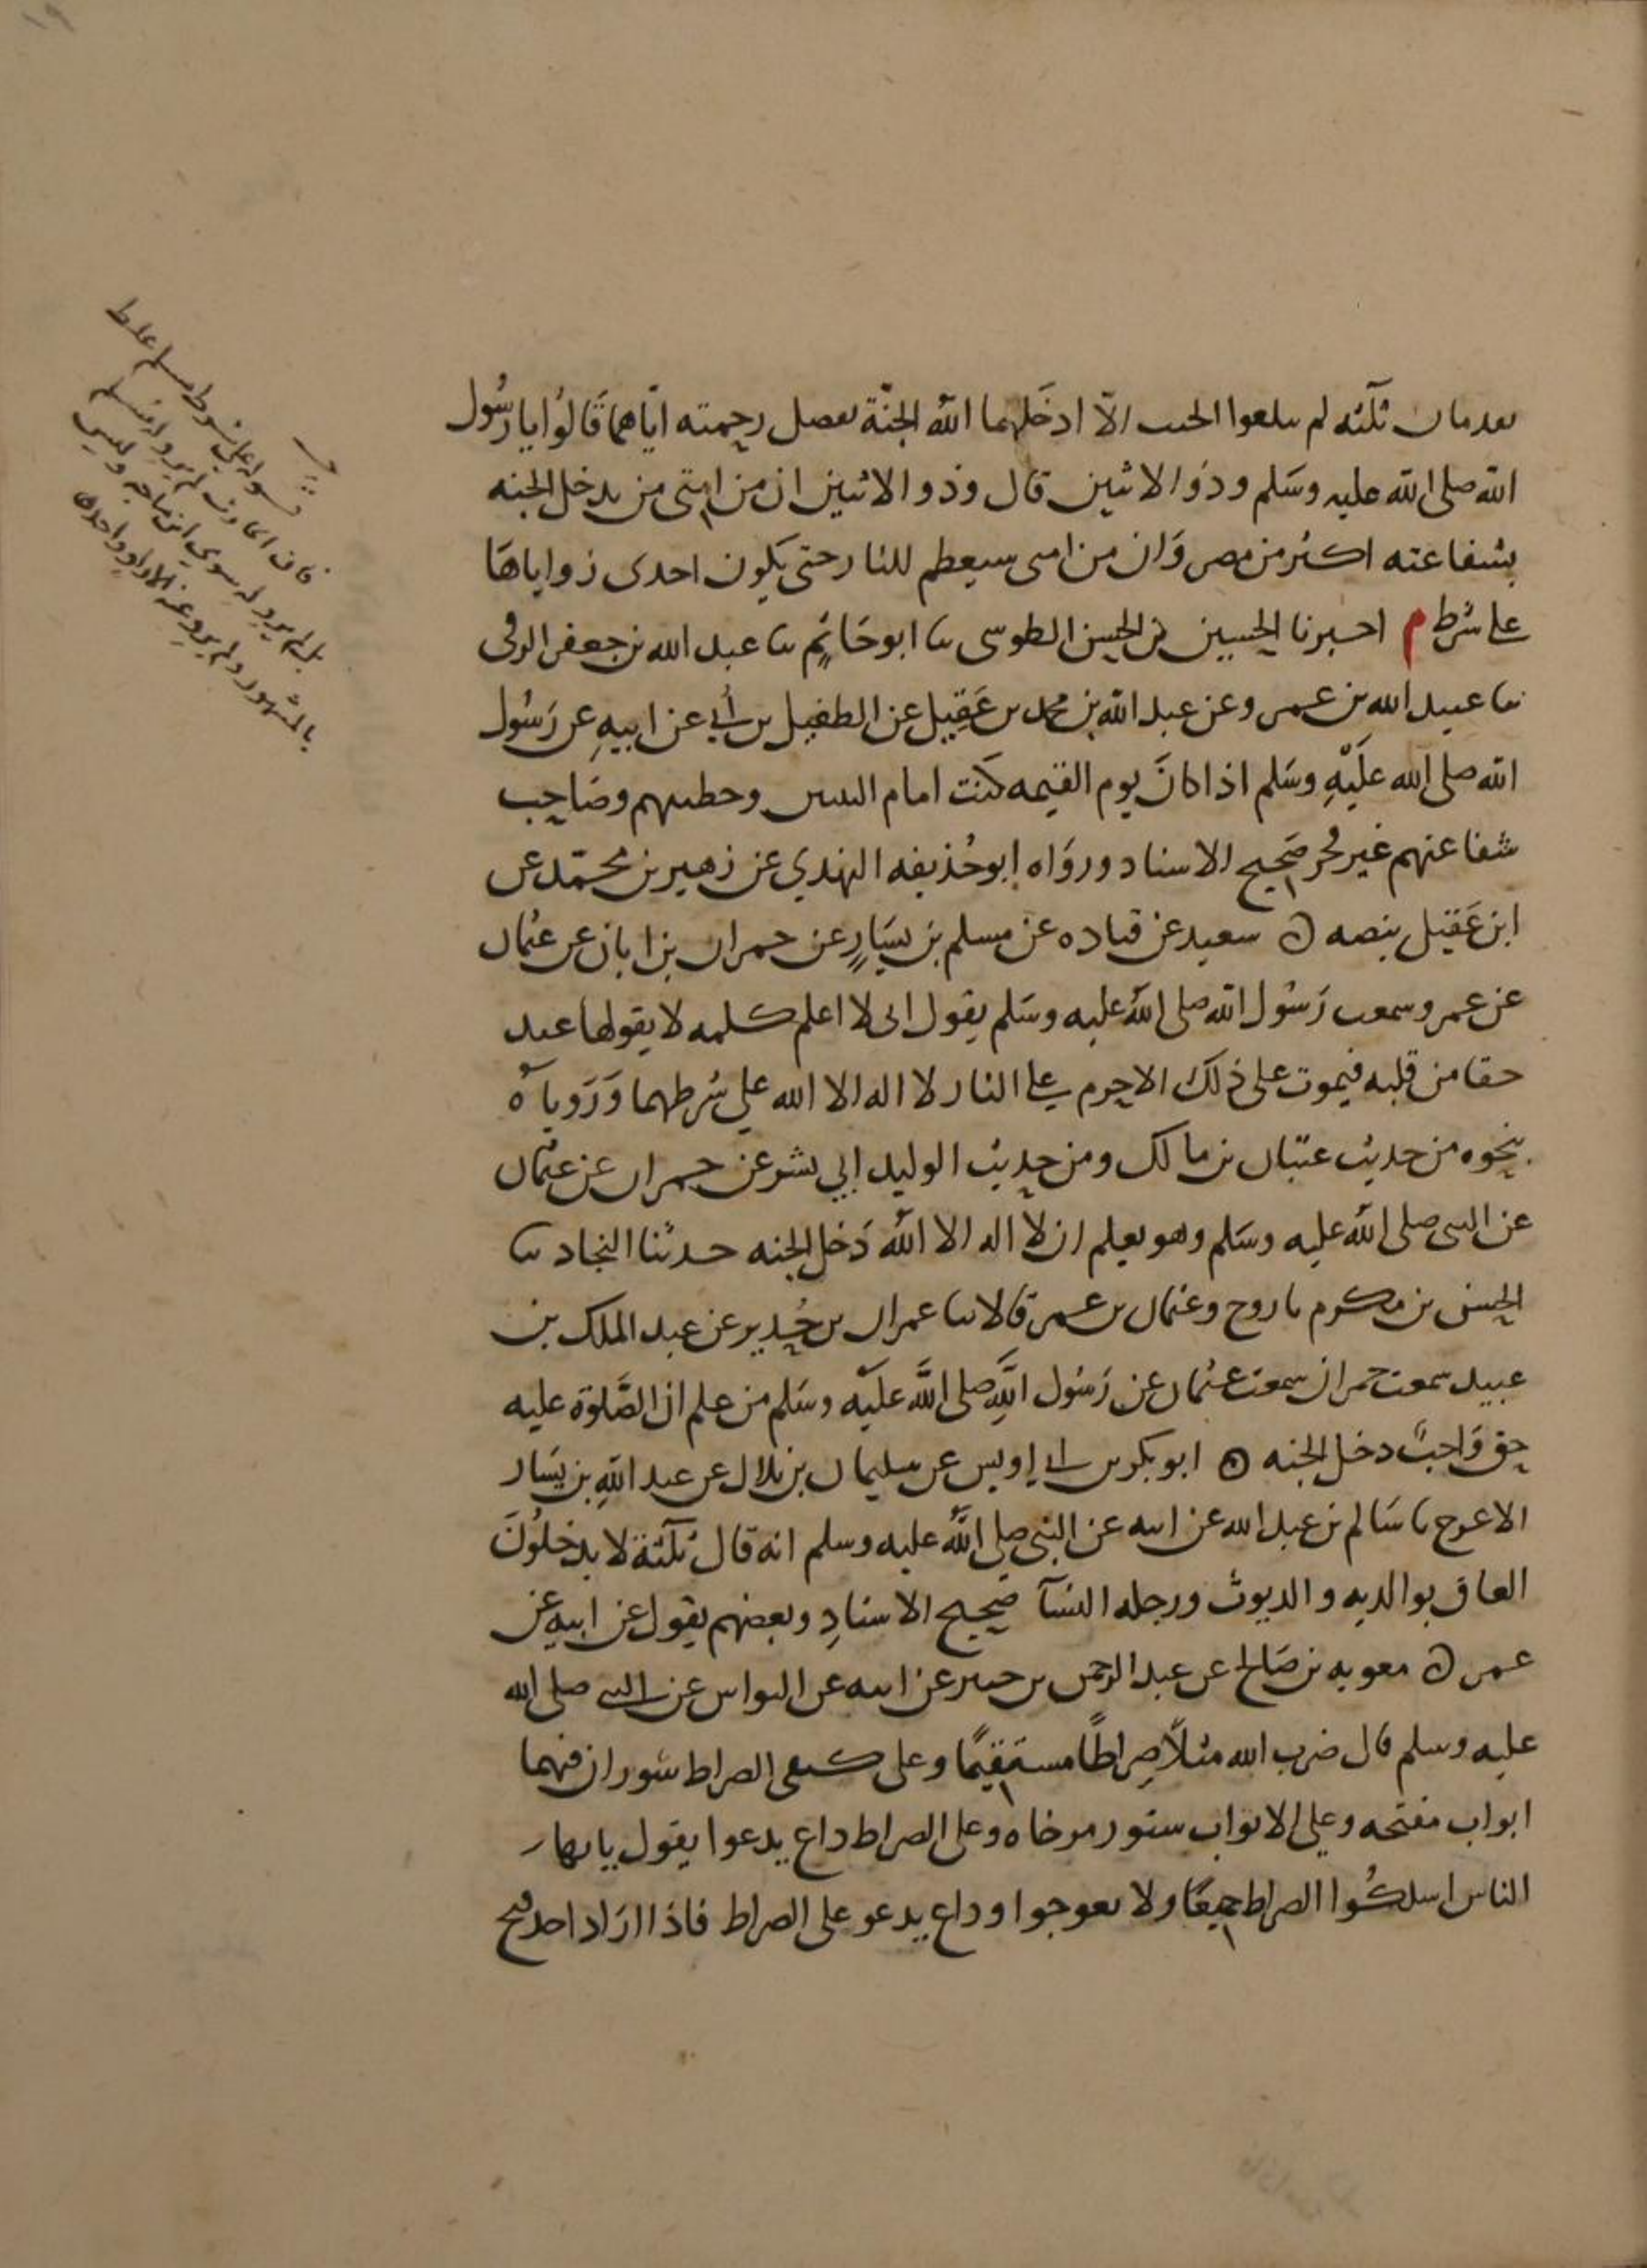 يقدمان ثلثه لم يبلغوا الحنث الّا ادخلهما الله الجنّة بفضل رحمته ايّاهما قالوا يا رسُول
الله صلى الله عليه وسَلم وذو الاثنين قال وذو الاثنين ان من امتى من يدخل الجنه
بشفاعته اكثر من مصر وَان من امتى سيعظم للنار حتى يكون احدى زواياهَا
على شرط م اخبرنا الحسين بن الحسن الطوسى ثنا ابو حَاتم ثنا عبد الله بن جعفر الرقى
ثنا عبيد الله بن عمرو عن عبد الله بن محمد بن عَقِيل عن الطفيل بن أبي عن ابيهِ عن رَسُول
الله صلى الله علَيْهِ وسَلم اذا كانَ يوم القيمه كنت امام النبيين وخطيبهم وصَاحِب
شفاعتهم غير فخر صَحيح الاسناد وروَاه ابو حُذيفه النهدي عن زهير بن محمّد عن
ابن عَقيل بنصه ه سعيد عن قتاده عن مسلم بن يسَارٍ عن حمران بن ابان عن عثمان
عن عمر وسمعت رَسُول الله صلى الله عليه وسَلم يقول انى لا اعلم كلمه لا يقولها عبد
حقا من قلبه فيموت على ذلك الا حرم على النار لا اله الا الله على شرطهما وَرَوياه
بنحوه من حديث عتبان بن مالك ومن حديث الوليد ابي بشر عن حمران عن عثمان
عن النبى صلى الله عليه وسَلم وهو يعلم ان لا اله الا الله دَخل الجنه حدثنا النجاد ثنا
الحسن بن مكرم نا روح وعثمان بن عمر قالا ثنا عمران بن حُدير عن عبد الملك بن
عبيد سمعت حمران سمعت عثمان عن رَسُول اللهِ صلى الله علَيه وسَلم من علم ان الصَّلوة عليه
حق وَاجبٌ دخل الجنه ه ابو بكر بن ابي اويس عن سليمان بن بلال عن عبد اللهِ بن يسَار
الاعرج نا سَالم بن عبد الله عن ابيه عن النبي صلى الله عليه وسلم انه قال ثلثة لا يدخلُونَ
العاق بوالديه والديوث ورجله النسآ صحيح الاسنادِ وبعضهم يقول عن ابيهِ عن
عمر ه معويه بن صَالح عن عبد الرحمن بن جبير عن ابيه عن النواس عن النبي صلى الله
عليه وسلم قال ضرب الله مثلًا صِراطًا مستقيمًا وعلى كنفى الصراط سوران فيهما
ابواب مفتحه وعلى الابواب ستور مرخاه وعلى الصراط داع يدعوا يقول يايها
الناس اسلكُوا الصراط جميعًا ولا تعوجوا وداع يدعو على الصراط فاذا ارَاد احد فتح
قوله على شرط مسلم غلط
فان لم يرو له مسلم
بل لم يرو له سوى ابن ماجه وليس
بالمشهور ولم يرو عنه الا راو واحد